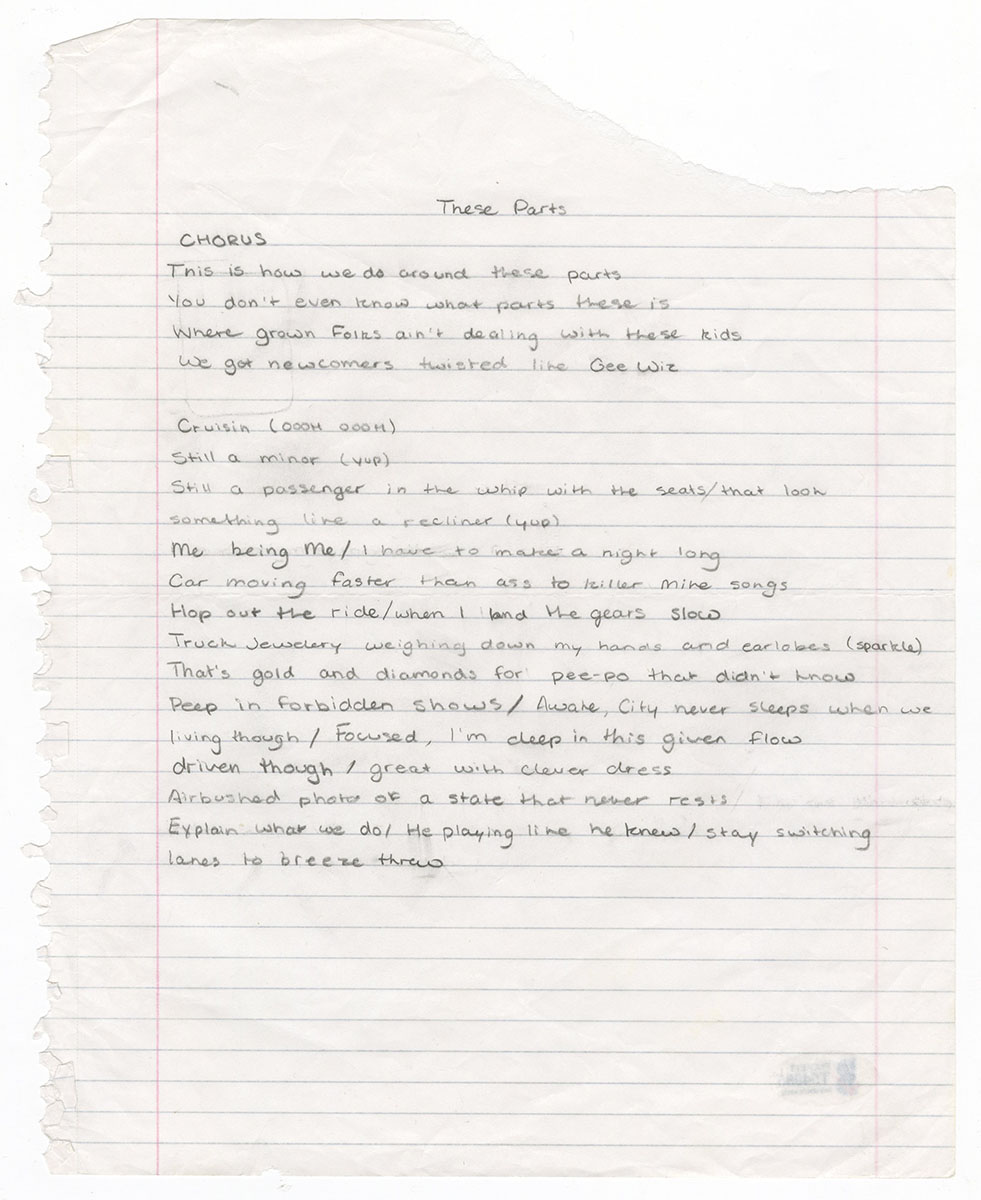 These Parts
CHORUS
This is how we do around these parts
You don't even know what parts these is
Where grown Folks ain't dealing with these kids
We got newcomers twisted like Gee Wiz
Cruisin (OOOH OOOH)
Still a minor (yup)
Still a passenger in the whip with the seats/that look
something like a recliner (yup)
Me being Me/I have to make a night long
Car moving faster than ass to killer Mike songs
Hop out the ride/when I land the gears slow
Truck Jewelery weighing down my hands and earlobes (sparkle)
That's gold and diamonds for pee-po that didn't know
Peep in forbidden shows/Awake, City never sleeps when we
living though/Focused, I'm deep in this given flow
driven though/great with clever dress
Airbushed photo of a state that never rests
Explain what we do/He playing like he knew/stay switching
lanes to breeze threw